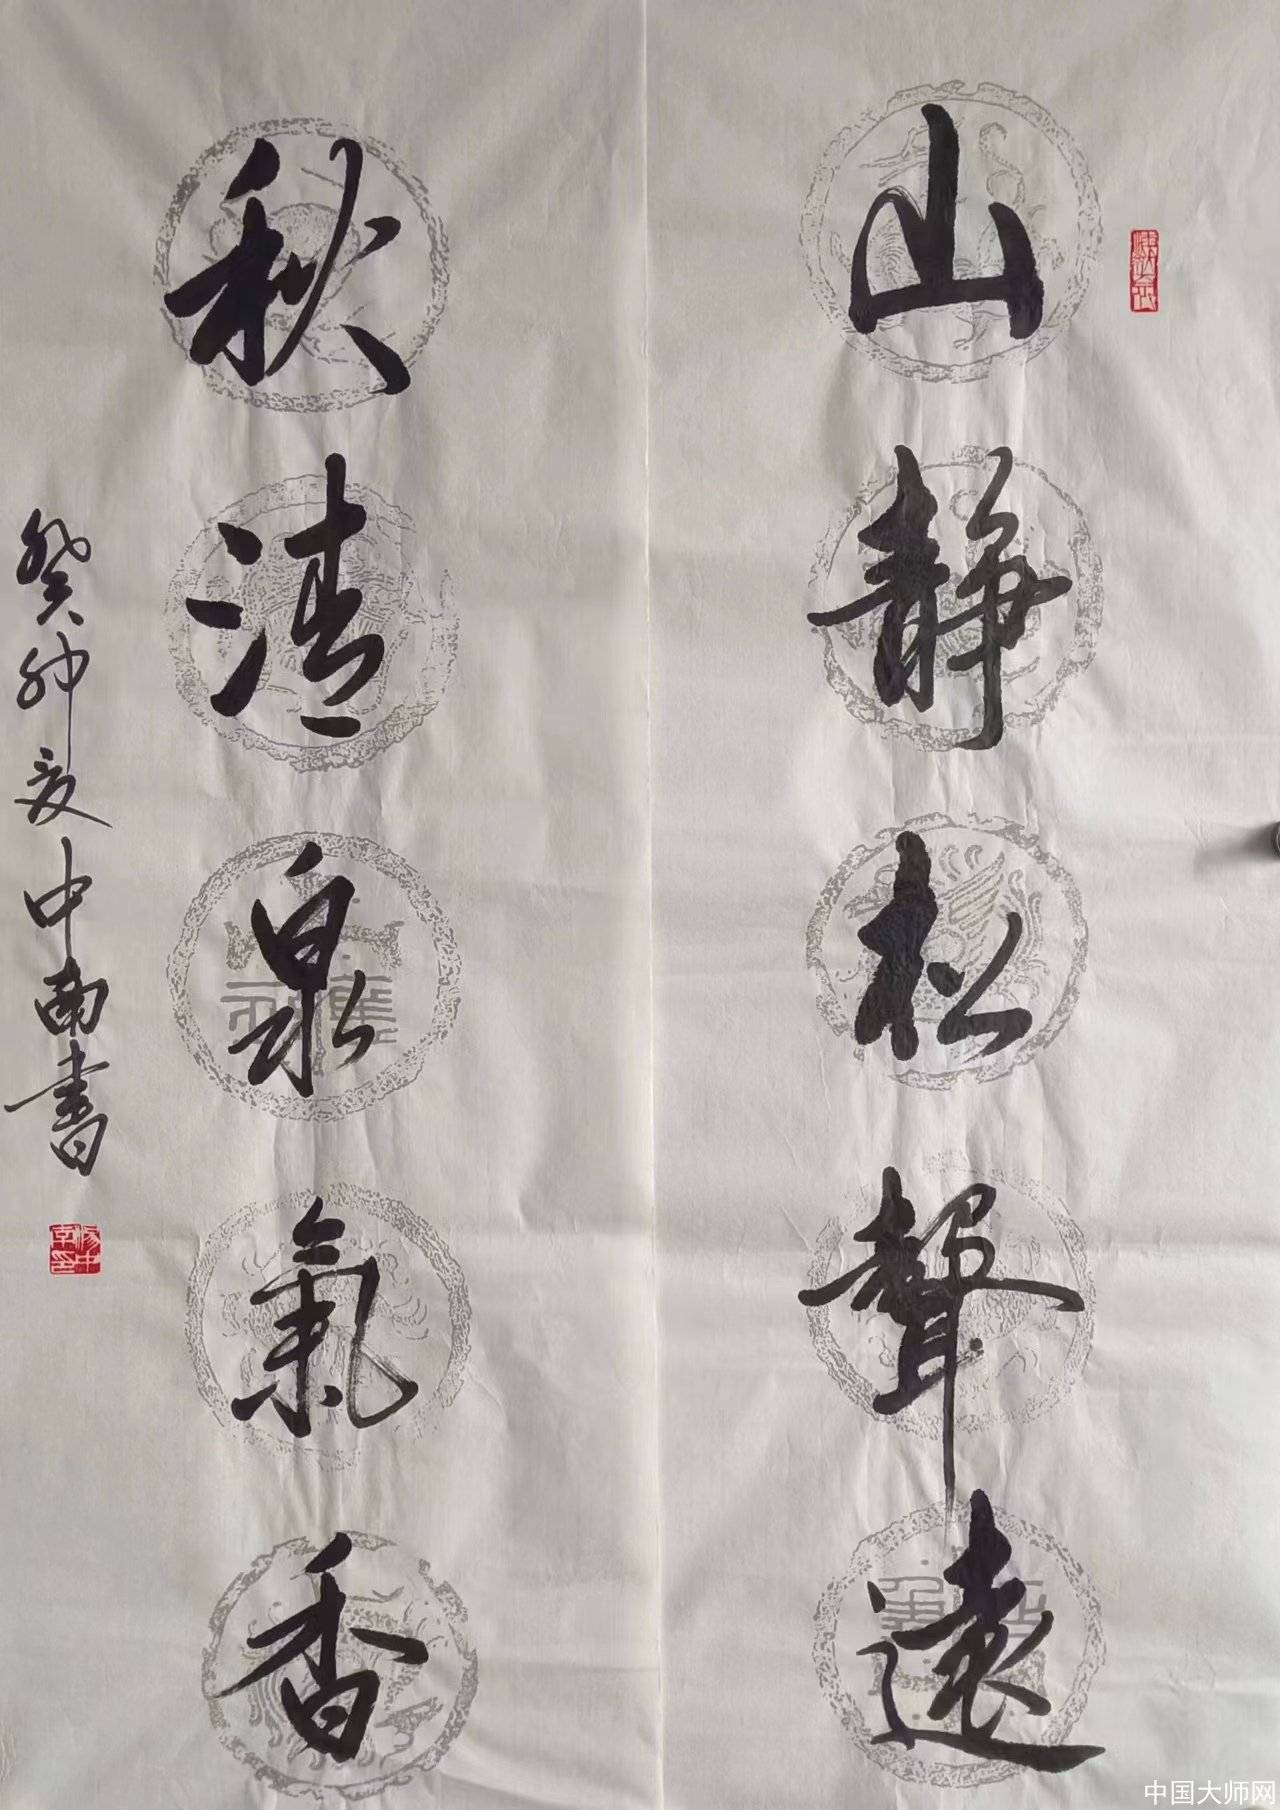 山静松聲遠
秋清泉氣香
癸卯夏中南书
中国大师网